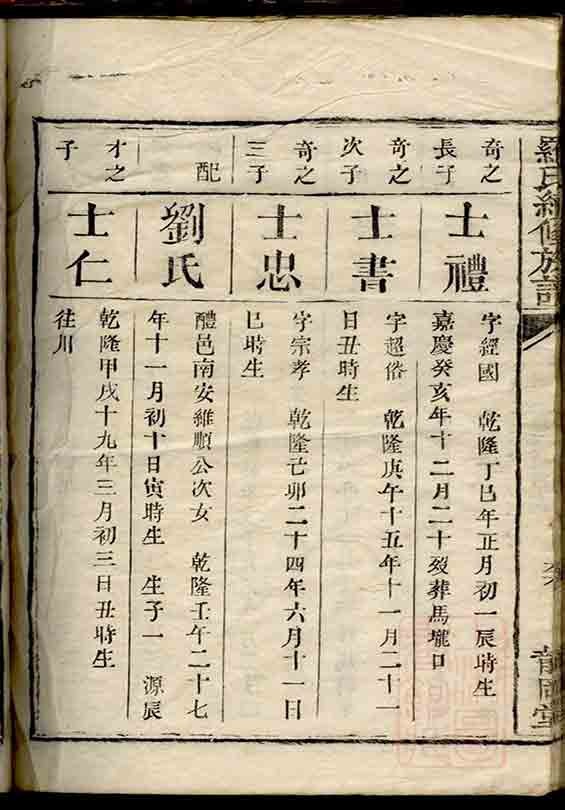 羅氏續修族譜
奇之
長子
士禮
字經國 乾隆丁巳年正月初一辰時生
嘉慶癸亥年十二月二十歿葬馬壠口
奇之
次子
士書
字超俗 乾隆庚午十五年十一月二十一
日丑時生
奇之
三子
士忠
字宗孝 乾隆己卯二十四年六月十一日
巳時生
配
劉氏
醴邑南安維順公次女 乾隆壬午二十七
年十一月初十日寅時生 生子一 源辰
才之
子
士仁
乾隆甲戌十九年三月初三日丑時生
徃川